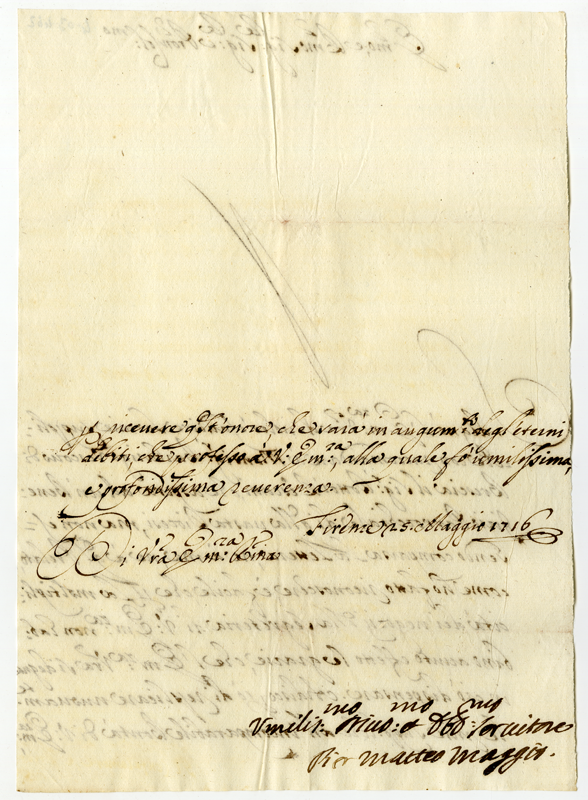 ricevere q.sto onore, che sarà in augum.to degl'eterni
debiti, che professo à V: Em:za, alla quale fò umilissima,
e profondissima reverenza.
Firenze 25. Maggio 1716
Di Vra Em:za Rma
Umilis:mo Obligmo: et Dev:mo Servitore
Pier Matteo Maggio.